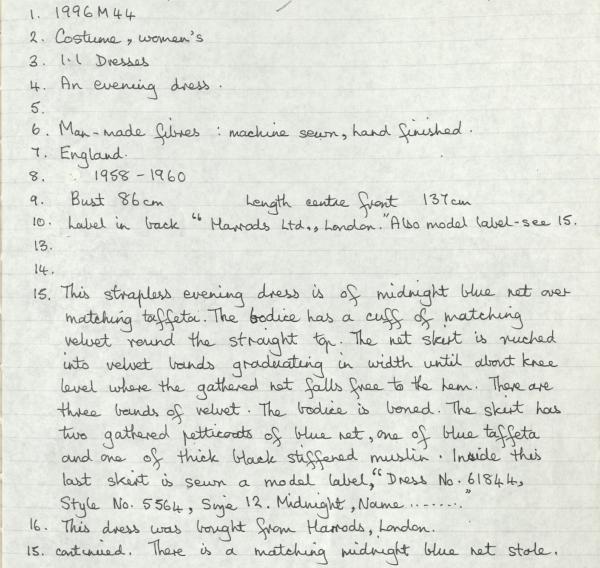 1. 1996 M44
2. Costume, women's
3. 1.1 Dresses
4. An evening dress.
5.
6. Man-made fibres : machine sewn, hand finished.
7. England.
8. 1958-1960
9. Bust 86cm Length centre front 137cm
10. Label in back "Harrods Ltd., London." Also model label-see 15.
13.
14.
15. This strapless evening dress is of midnight blue net over
matching taffeta. The bodice has a cuff of matching
velvet round the straight top. The net skirt is ruched
into velvet bands graduating in width until about knee
level where the gathered net falls free to the hem. There are
three bands of velvet. The bodice is boned. The skirt has
two gathered petticoats of blue net, one of blue taffeta
and one of thick black stiffened muslin. Inside this
last skirt is sewn a model label, "Dress No. 61844,
Style No. 5564, Size 12. Midnight, Name ........"
16. This dress was bought from Harrods, London.
15. continued. There is a matching midnight blue net stole.